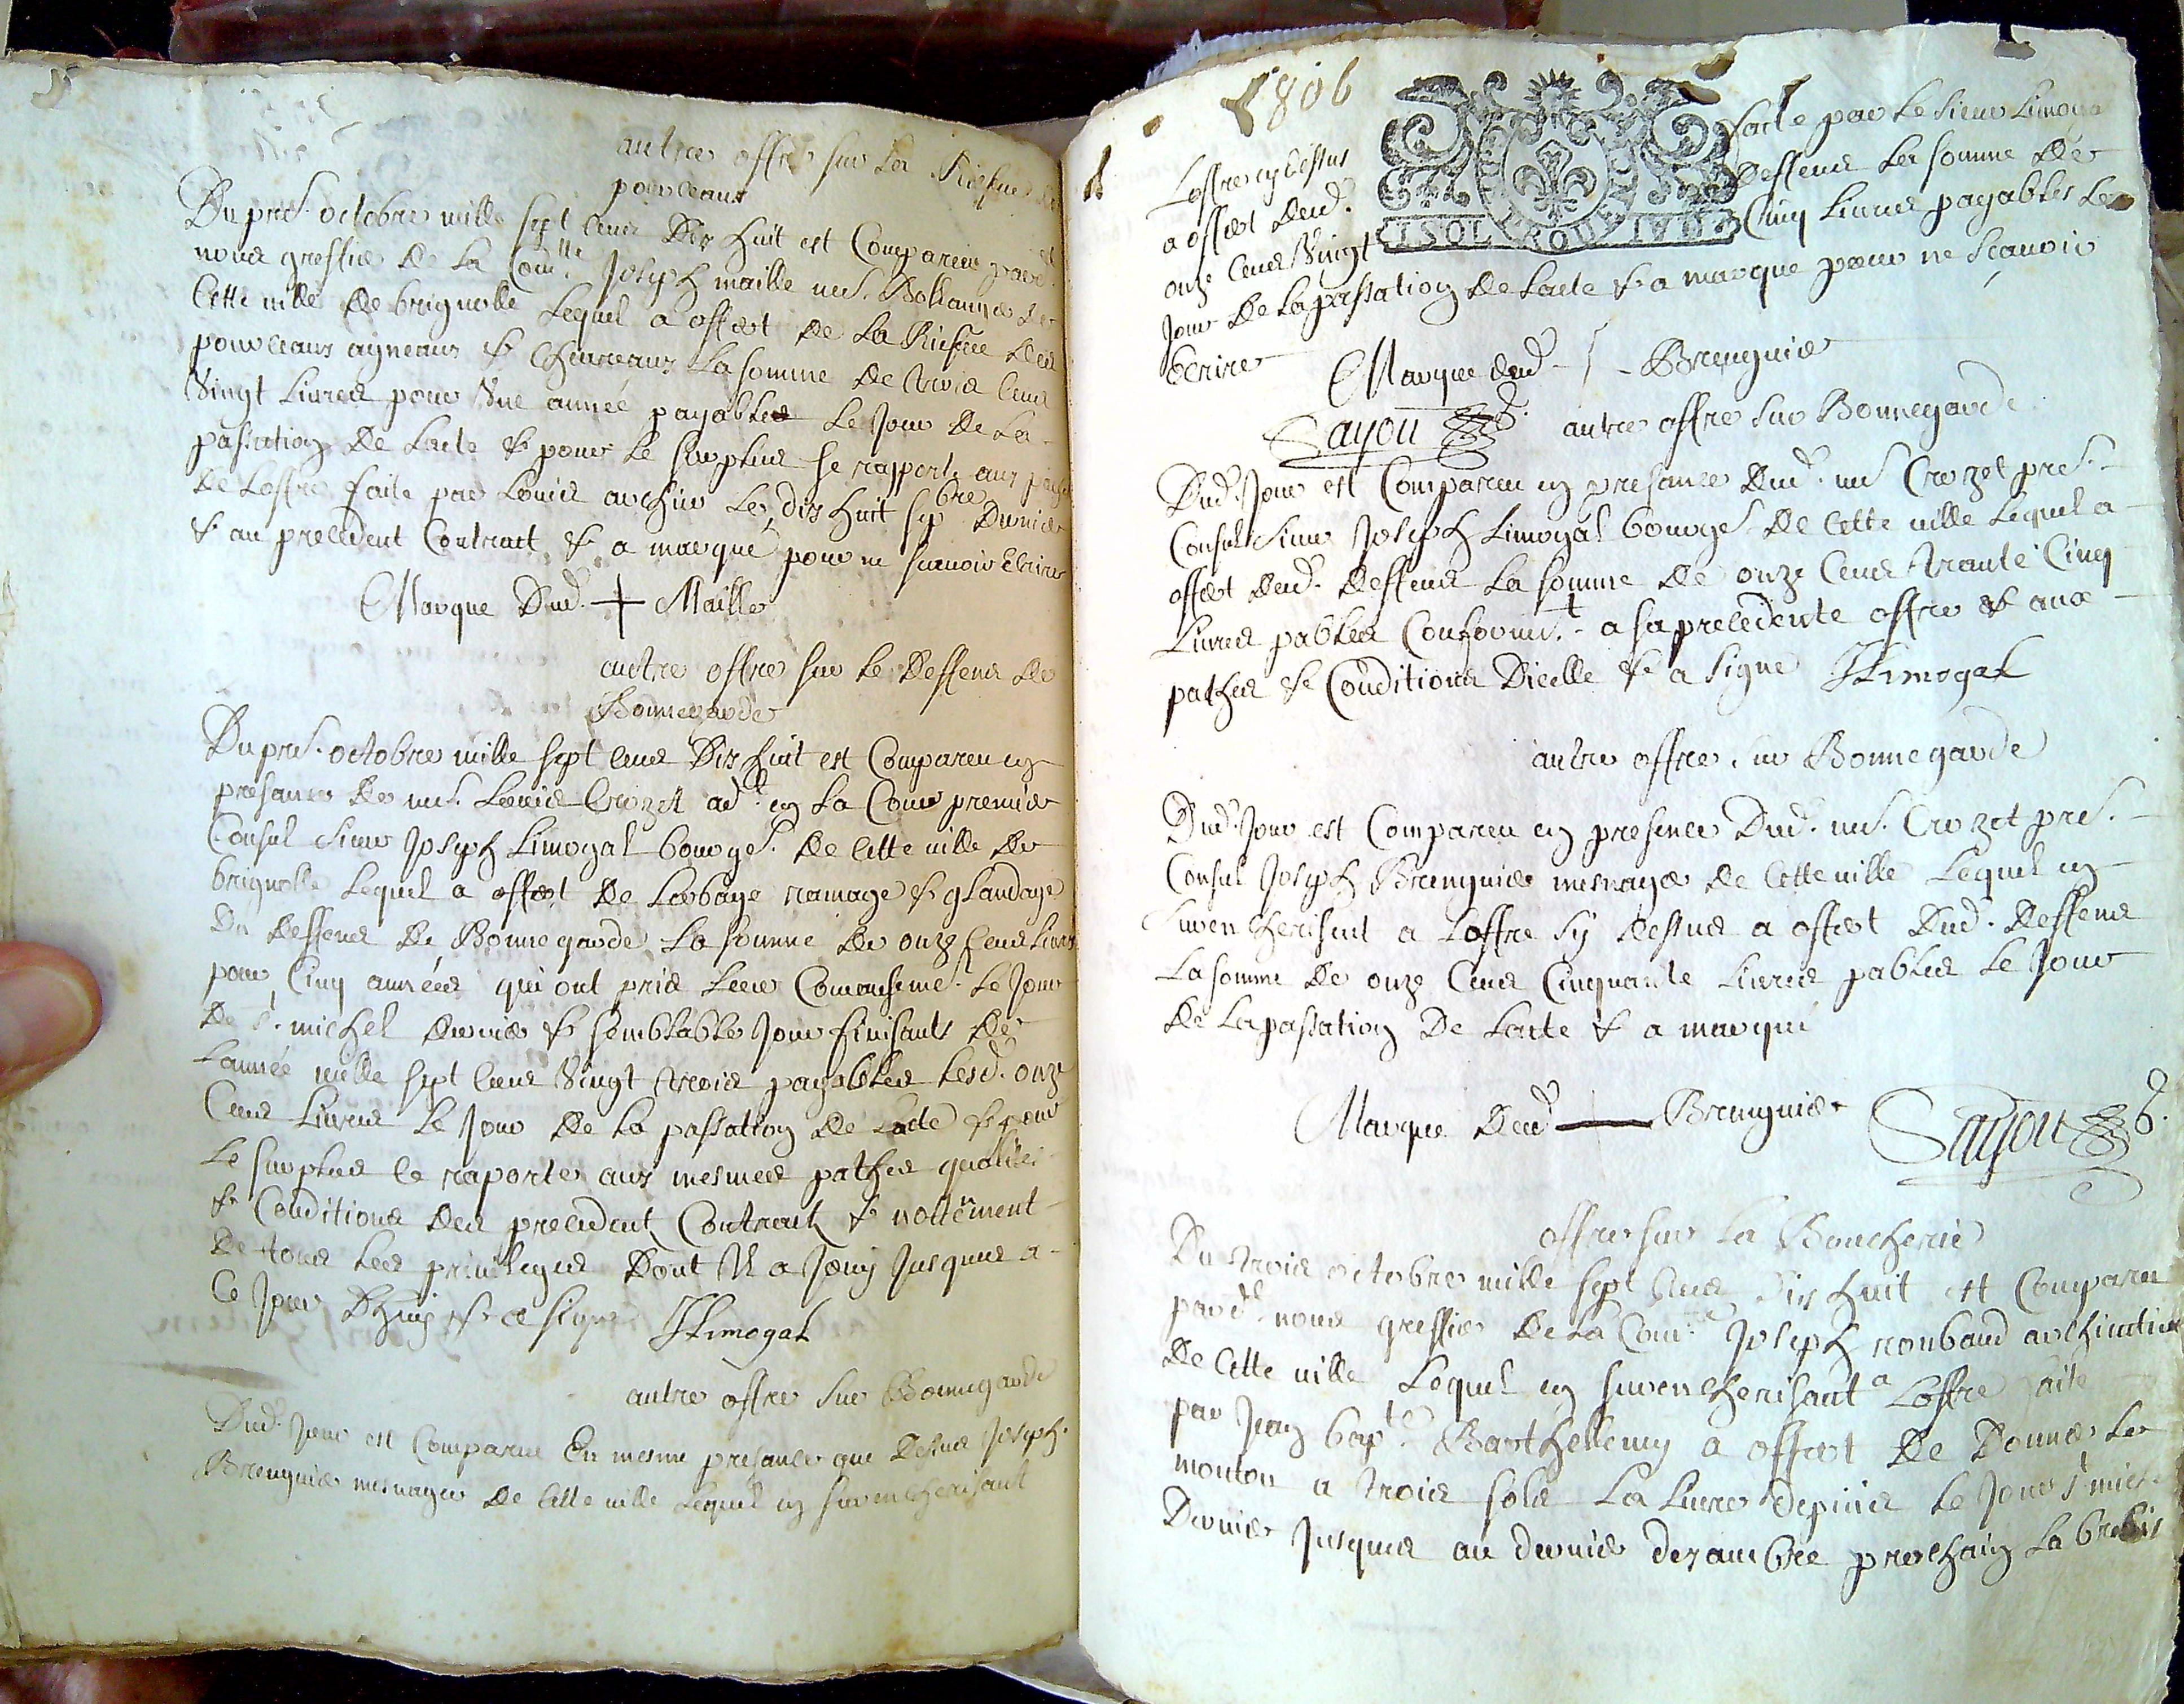 autre offre sur la
pourceaux
Du pres. octobre mille sept cens dix huit est Comparem pard.t
nous greffier de la Com.tte Joseph maille
Cette ville de brignolle Lequel a offert de la des
pourceaux agneaux & chevreaux La somme de trois cens
Vingt Livres pour Une année payables Le Jour de La
passation de Lacte & pour Le surplus se rapporte aux
de Loffre faite par Louis archier Le dix huit sep.bre dernier
& au precedent Contract & a marqué pour ne scavoir Ecrire
Marque Dud. + Maille
autre offre sur Le deffens de
Bonnegarde
Du pres. octobre mille sept cens Dix huit est Comparem en
presance de mes. Louis Crozet ad.t en La Cour premier
Consul sieur Joseph Limogal bourges. De Cette ville De
brignolle Lequel a offert De Lerbage ramage & glandage
Du deffens De Bonnegarde La somme De onze Cens Livres
pour Cinq années qui ont pris Leur Comansemt. Le Jour
De S.t michel dernier & semblable Jour finisants De
Lannée mille sept cens Vingt trois payables Lesd. onze
Cens Livres Le Jour De La passation De Lacte & pour
Le surplus ce raporte aux mesmes pathes qualités
& Conditions des precedent Contract & nottement
De tous Les privileges Dont Il a Jouy Jusques a
Ce Jour Dhuy & a signe JLimogal
autre offre sur Bonnegarde
Dud. Jour est Comparem En mesme presance que Dessus Joseph
Brenguier mesnager de Cette ville Lequel en surencherisant
1806
Loffre cy dessus faite par Le sieur Limogal
a offert dud. Deffens La somme De
onze Cens Vingt Cinq Livres payables Le
ISOL ROU IVDE
Jour De La passation De Lacte & a marque pour ne scavoir
Ecrire
Marque dud. Brenguier
Sayou
autre offre sur Bonnegarde
Dud. Jour est Comparem en presance Dud. mes Crozet pres.
Consul sieur Joseph Limogal bourges De Cette ville Lequel a
offert dud. Deffens La somme De onze Cens trante Cinq
Livres pables Conform.t a sa precedente offre & aux
pathes & Conditions Dicelle & a signe JLimogal
autre offre sur Bonnegarde
Dud. Jour est Comparem en presence Dud. mes. Crozet pres.
Consul Joseph Brenguier mesnager de Cette ville Lequel en
surencherisent a Loffre sy dessus a offert Dud. Deffens
La somme De onze Cens Cinquante Livres pables Le Jour
De La passation De Lacte & a marqué
Marque Dud. Brenguier
Sayou
offre sur La Boucherie
Du trois octobre mille sept Cens Dix huit est Comparem
pard.t nous greffier De La Com.te Joseph roubaud
De Cette ville Lequel en surencherisant a Loffre faite
par Jean bap.te Barthellemy a offert De Donner Le
mouton a trois sols La Livre depuis Le Jour S.t michel
Dernier Jusques au dernier dezambre prochain La brebis